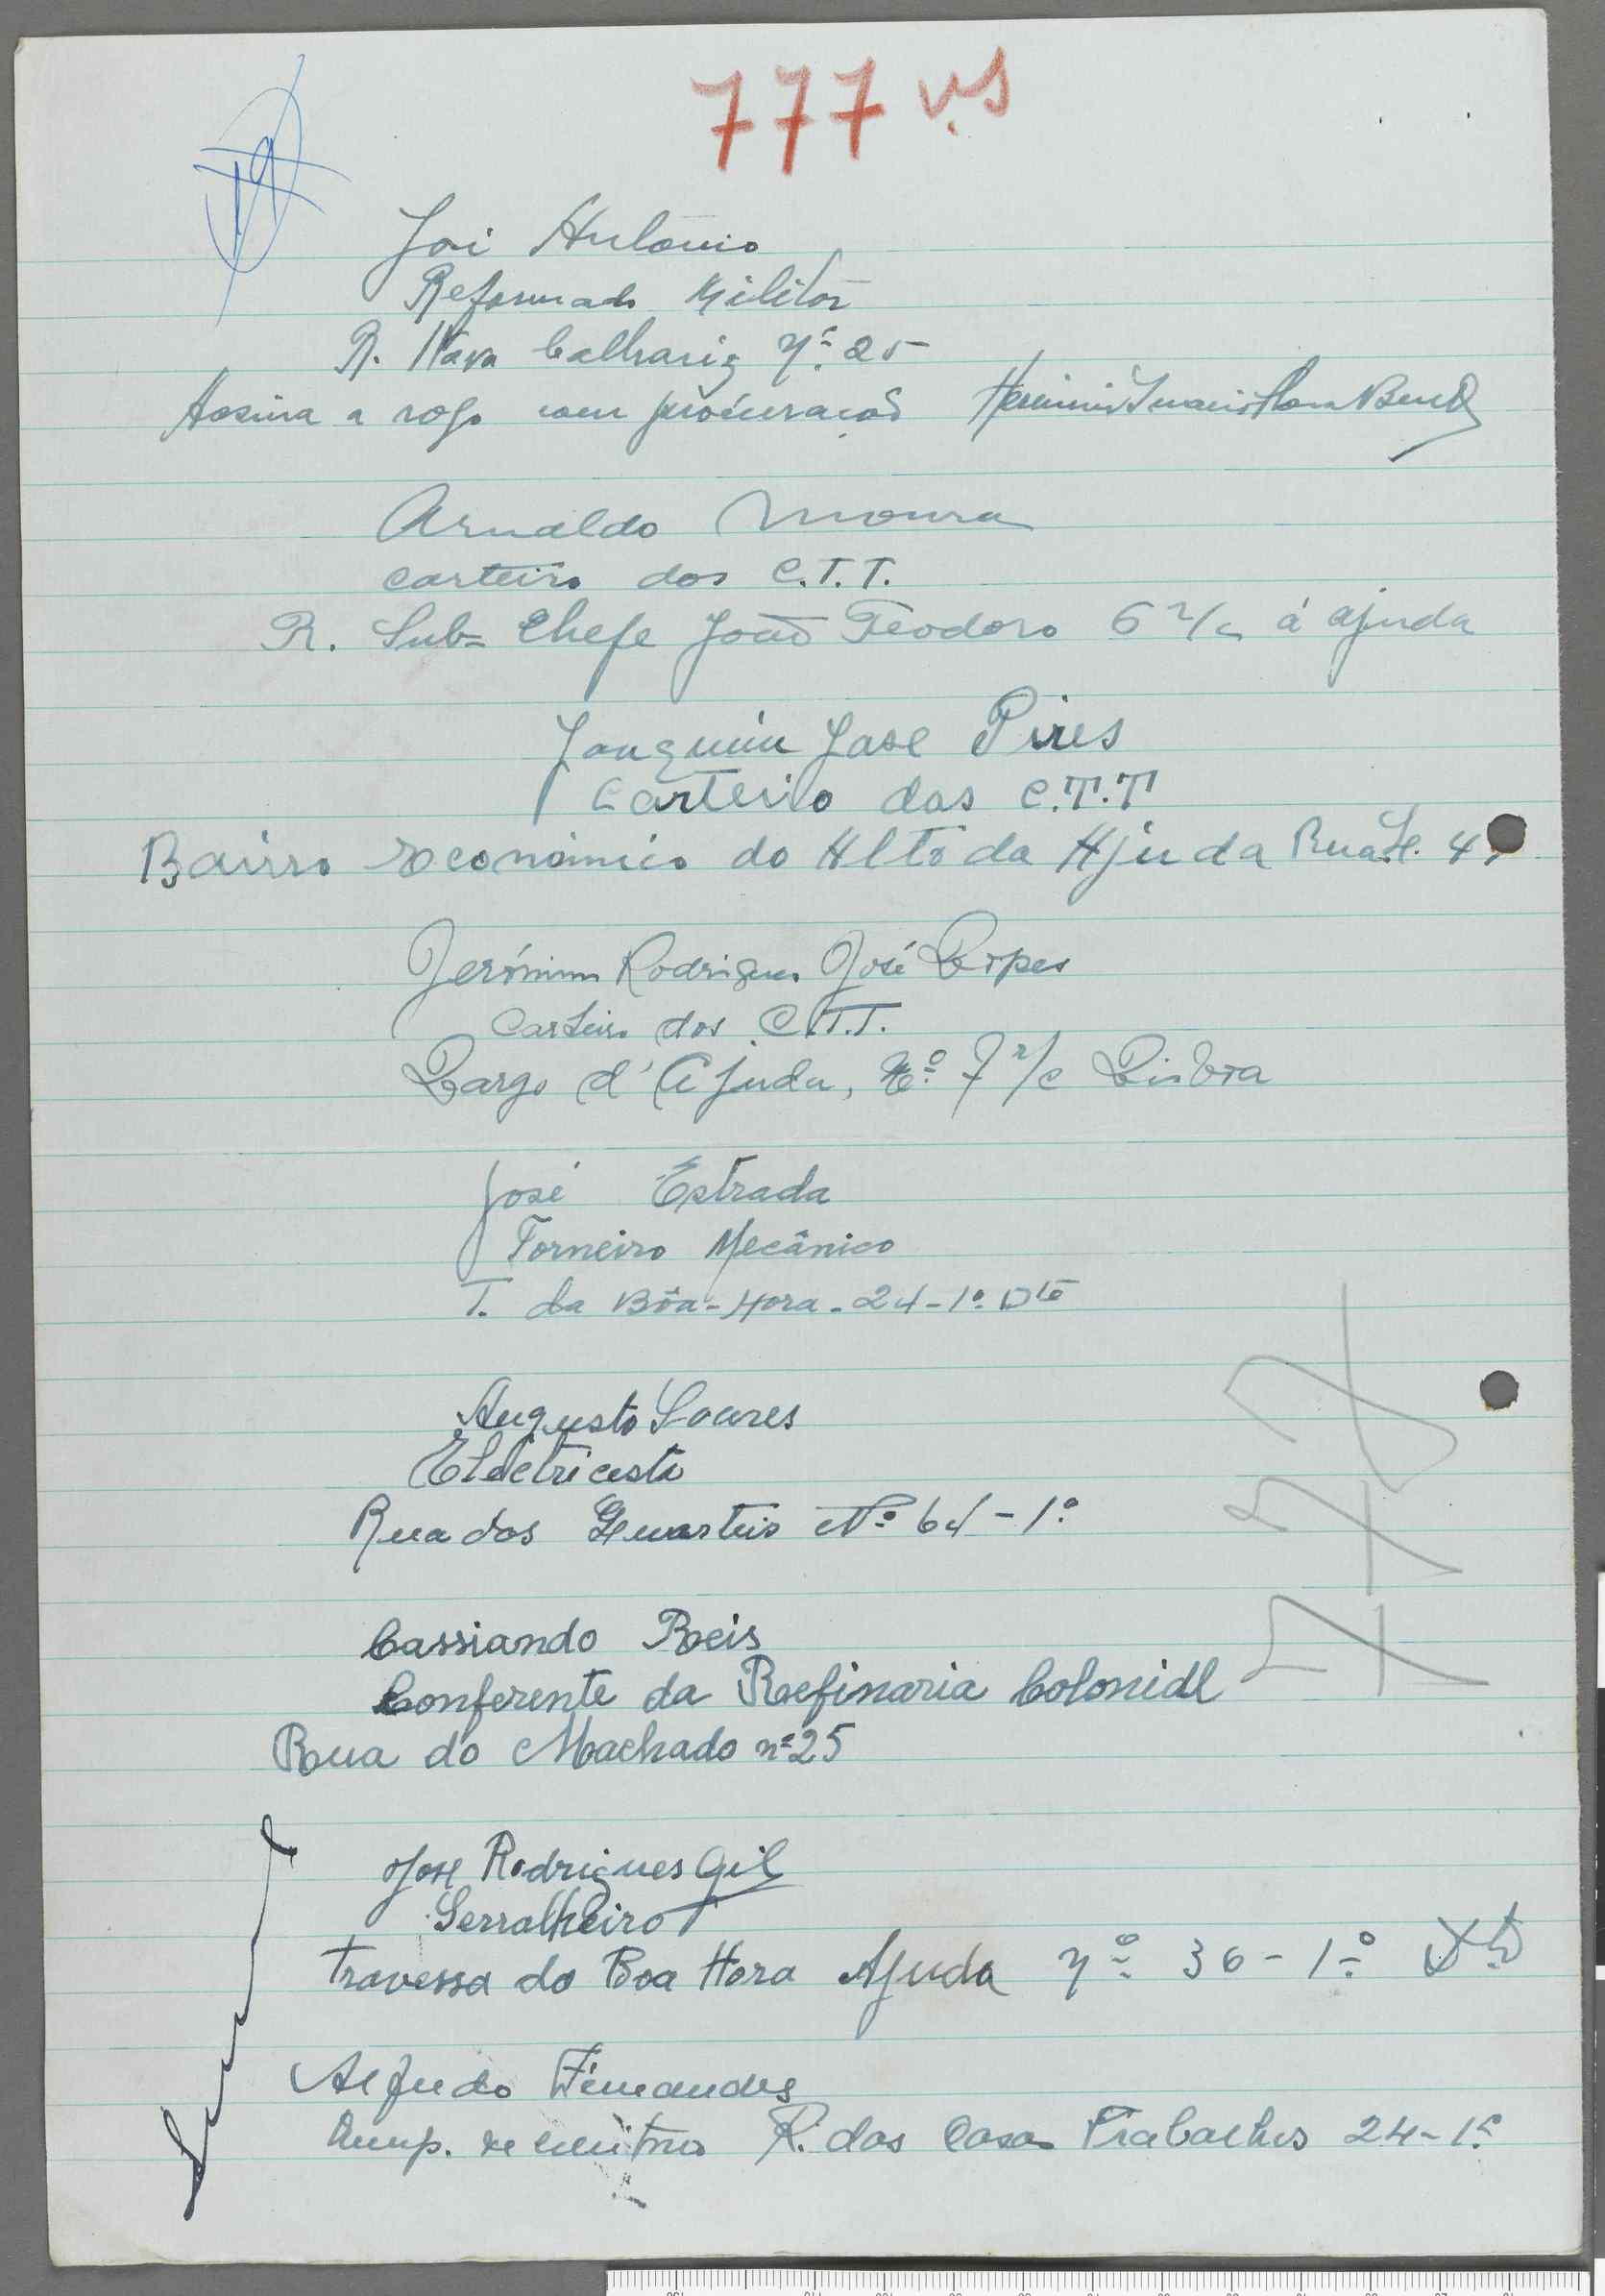 777 v.s
José António
Reformado Militar
R. Nova Calhariz Nº 25
Assina a rogo com procuração
Arnaldo Moura
carteiro dos C.T.T.
R. Sub-Chefe João Teodoro 6 r/c á ajuda
Joaquim José Pires
Carteiro dos C.T.T
Bairro Económico do Alto da Ajuda Rua H. 4
Jerónimo Rodrigues José Lopes
Carteiro dos C.T.T.
Largo d'Ajuda, Nº 7 r/c Lisboa
José Estrada
Torneiro Mecânico
T. da Bôa-Hora-24-1º Dtº
Augusto Soares
Eletricista
Rua dos Quarteis Nº 64-1º
Cassiando Reis
Conferente da Refinaria Colonial
Rua do Machado nº 25
777
José Rodrigues Gil
Serralheiro
Travessa da Boa Hora Ajuda Nº 36-1º Dtº
Alfredo Fernandes
Emp. R. das Casas Trabalho 24-1º